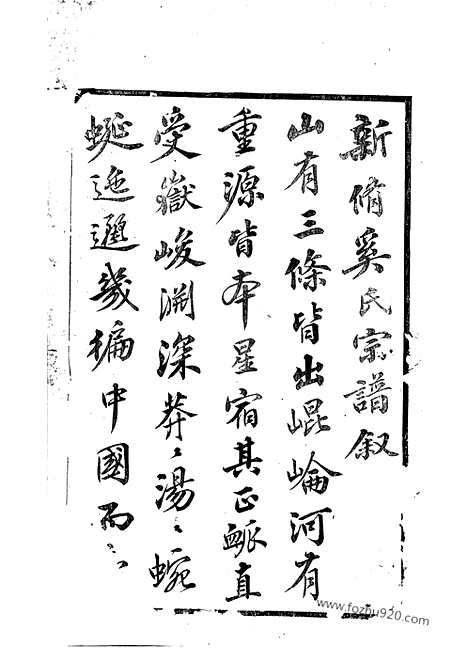 新脩奚氏宗譜叙
山有三條皆出崐崘河有
重源皆本星宿其正䘑直
受嶽峻渊深莽〻湯〻蜿
蜒迤邐幾徧中國而
www.fozhu920.com